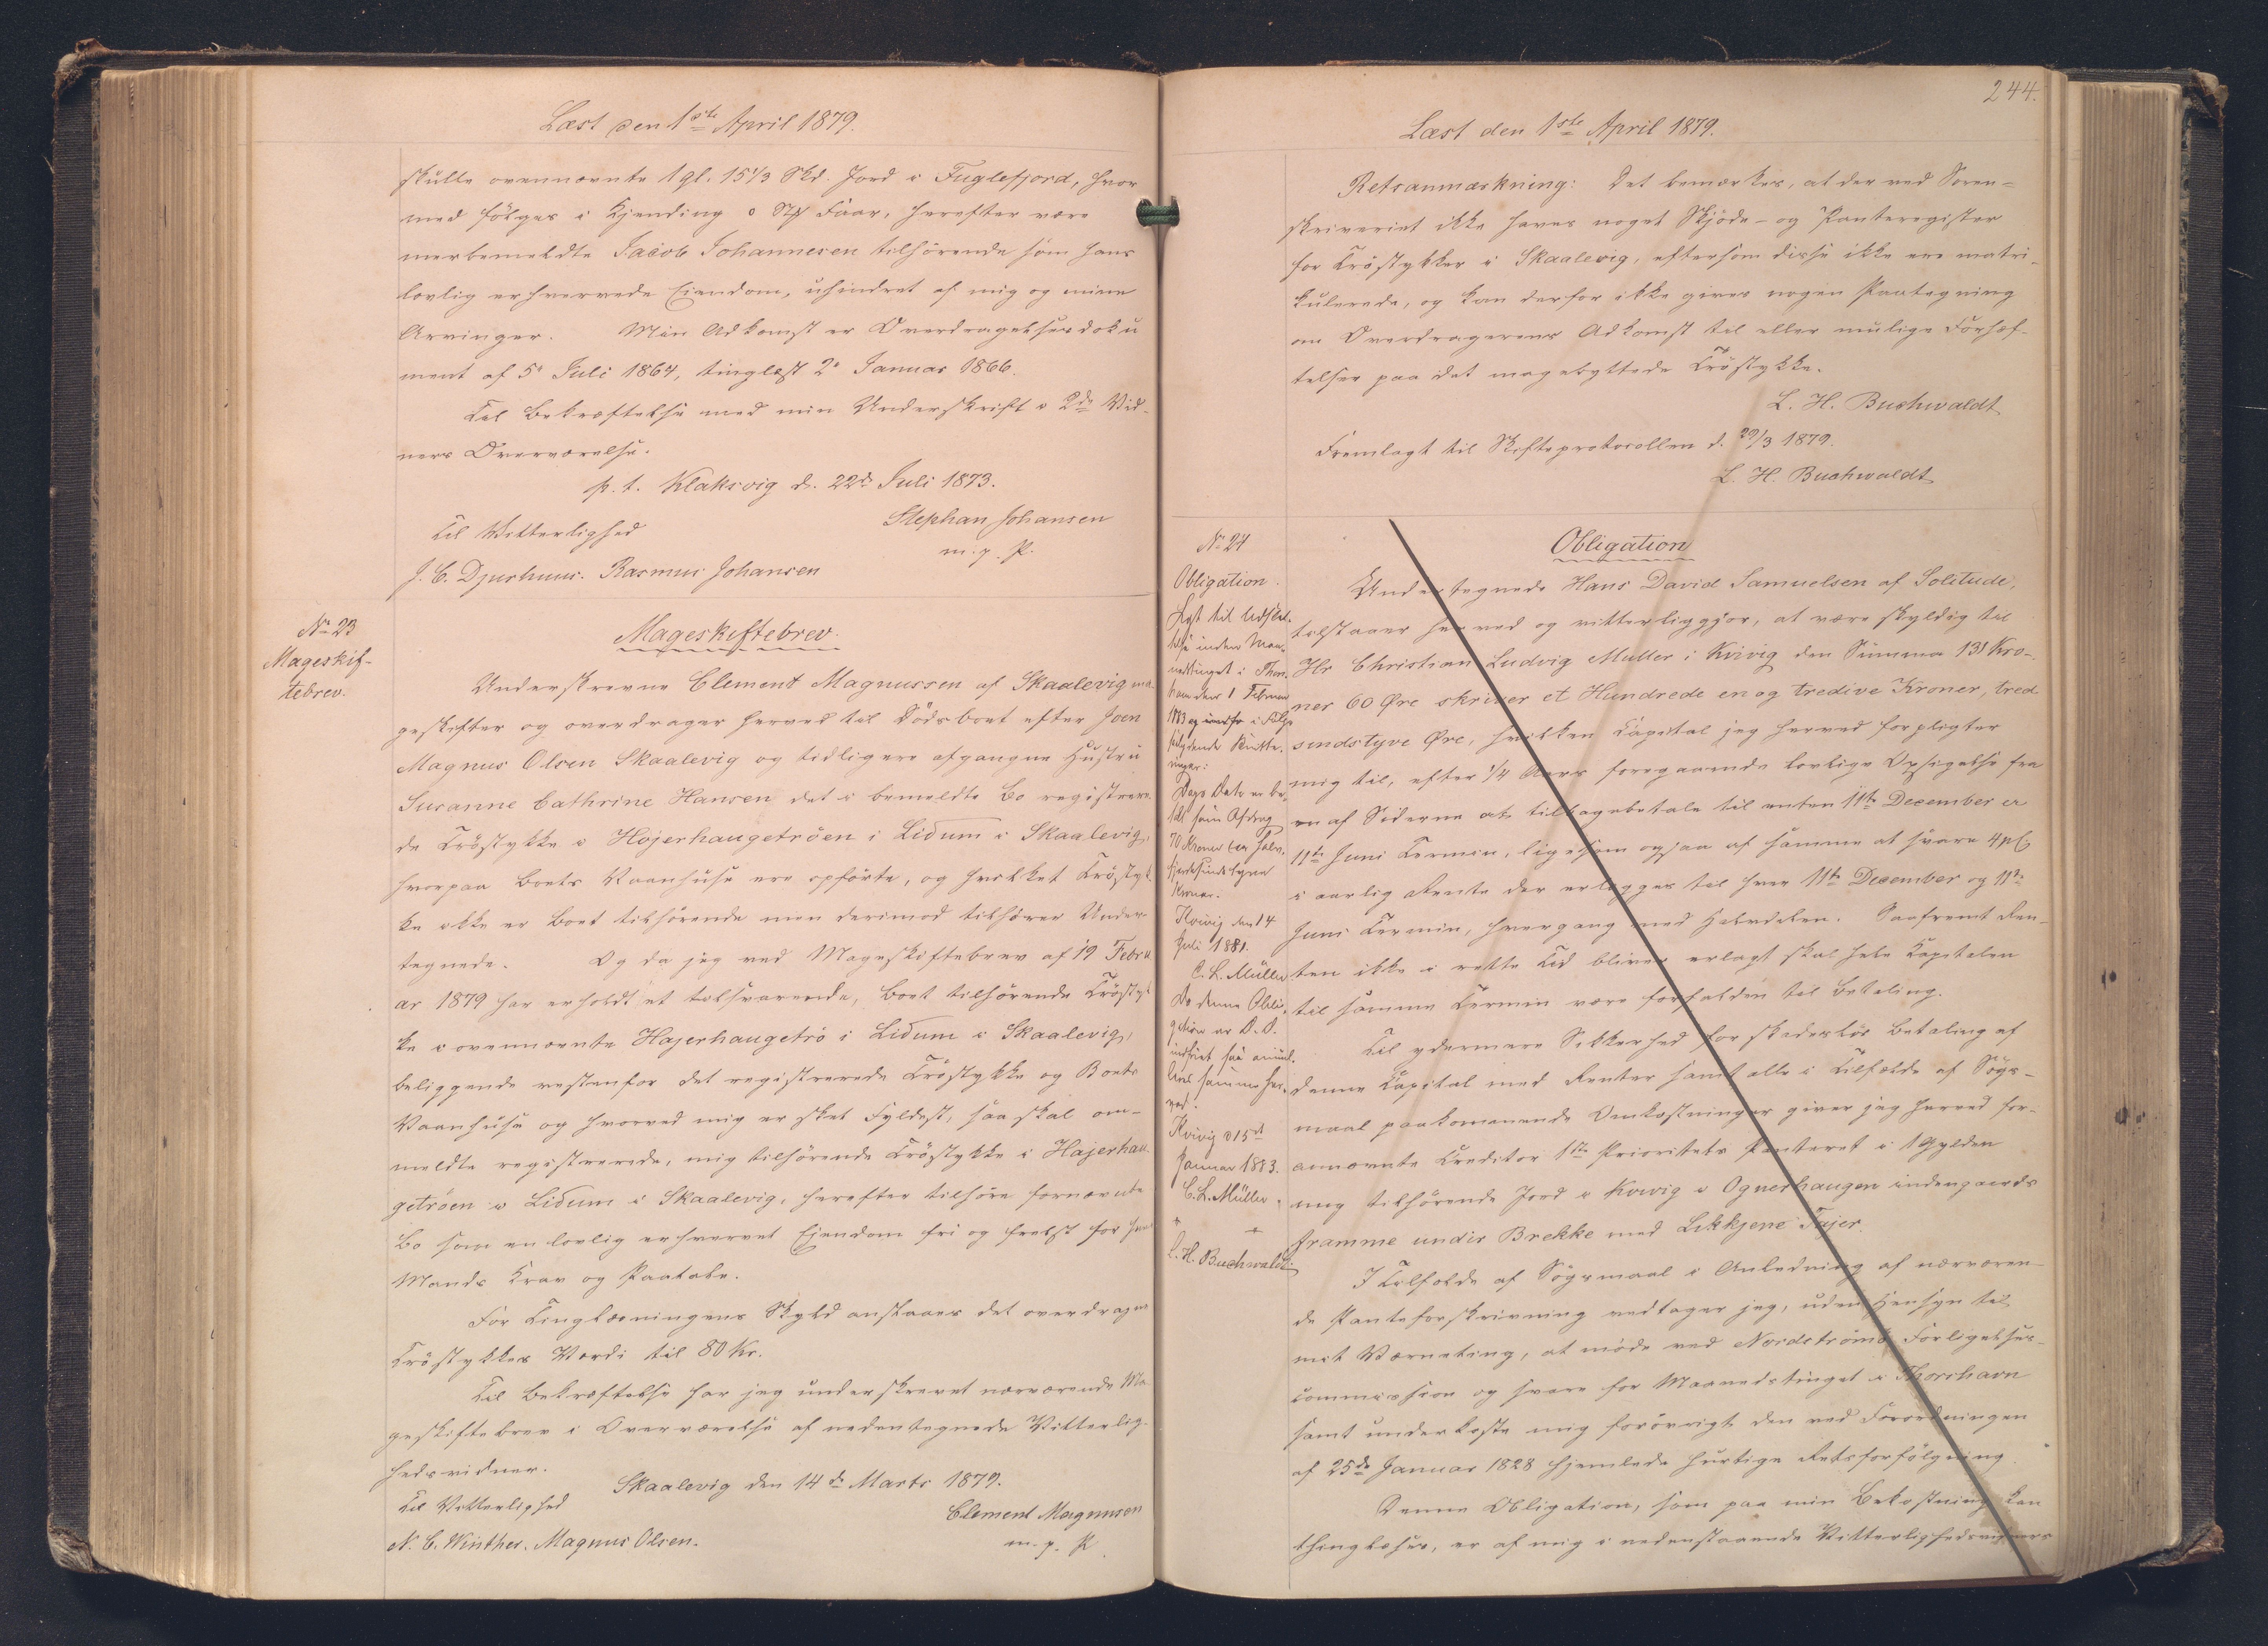 Læst den 1ste April 1879.
skulle ovennævnte 1 gl. 15 1/3 Skd. Jord i Fuglefjord, hvor
med følger i Kjending 0 Stk Faar, herefter være
merbemeldte Jacob Johannesen tilhørende som hans
lovlig erhvervede Eiendom, uhindret af mig og mine
Arvinger. Min Adkomst er Overdragelsesdoku
ment af 5te Juli 1864, tinglæst 2d Januar 1866.
Til Bekræftelse med min Underskrift i 2de Vid-
ners Overværelse.
p. t. Klaksvig d. 22de Juli 1873.
Til Vitterlighed
Stephan Johansen
m. p. P.
J. C. Djurhuus. Rasmus Johansen
No 23
Mageskif-
tebrev.
Mageskiftebrev.
Underskrevne Clement Magnussen af Skaalevig ma-
geskifter og overdrager herved til Dødsboet efter Joen
Magnus Olsen Skaalevig og tidligere afgangne Hustru
Susanne Cathrine Hansen det i bemeldte Bo registrere-
de Trøstykke i Højerhaugetrøen i Lidum i Skaalevig,
hvorpaa Boets Vaanhuse ere opførte, og hvilket Trøstyk-
ke ikke er Boet tilhørende men derimod tilhører Under-
tegnede. Og da jeg ved Mageskiftebrev af 19 Febru
ar 1879 har erholdt et tilsvarende, Boet tilhørende Trøstyk
ke i ovennævnte Hajerhaugetrø i Lidum i Skaalevig,
beliggende vestenfor det registrerede Trøstykke og Boets
Vaanhuse og hvorved mig er sket Fyldest, saa skal om-
meldte registrerede, mig tilhørende Trøstykke i Hajerhau
getrøen i Lidum i Skaalevig, herefter tilhøre fornævnte
Bo som en lovlig erhvervet Ejendom fri og frelst for hver
Mands Krav og Paatale.
For Tinglæsningens Skyld anslaaes det overdragne
Trøstykkes Værdi til 80 Kr.
Til Bekræftelse har jeg underskrevet nærværende Ma
geskiftebrev i Overværelse af nedentegnede Vitterlig-
hedsvidner.
Skaalevig den 14de Marts 1879.
Til Vitterlighed
Clement Magnussen
N. C. Winther. Magnus Olsen.
m. p. P.
244.
Læst den 1ste April 1879.
Retsanmærkning: Det bemærkes, at der ved Soren-
skriveriet ikke haves noget Skjøde- og Panteregister
for Trøstykker i Skaalevig, eftersom disse ikke ere matri-
kulerede, og kan derfor ikke gives nogen Paategning
om Overdragerens Adkomst til eller mulige Forhæf-
telser paa det magebyttede Trøstykke.
L. H. Buchwaldt
Fremlagt til Skifteprotocollen d. 29/3 1879.
L. H. Buchwaldt
No 24
Obligation.
Læst til Udslet-
telse inden Maa-
nedstinget i Thors-
havn den 1 Februar
1883 og indført i Følge
følgende Kvitte-
ringer:
Dags Dato er be-
talt som Afdrag
70 Kroner
halv-
fjerdsindstyve
Kroner.
Kvivig den 14
Juli 1881.
C. L. Müller
Da denne Obli-
gation er D. D.
indfriet saa annul-
leres samme her-
ved.
Kvivig d 15de
Januar 1883.
C. L. Müller.
L. H. Buchwaldt
Obligation
Undertegnede Hans David Samuelsen af Solitude,
tilstaaer herved og vitterliggjør, at være skyldig til
Hr Christian Ludvig Müller i Kvivig den Summa 131 Kro-
ner 60 Øre skriver et Hundrede en og tredive Kroner, tred
sindstyve Øre, hvilken Capital jeg herved forpligter
mig til, efter 1/4 Aars foregaaende lovlige Opsigelse fra
en af Siderne at tilbagebetale til enten 11te December er
11te Juni Termin, ligesom ogsaa af samme at svare 4 pCt
i aarlig Rente der erlægges til hver 11te December og 11te
Juni Termin, hvergang med Halvdelen. Saafremt Ren-
ten ikke i rette Tid bliver erlagt skal hele Kapitalen
til samme Termin være forfalden til Betaling.
Til ydermere Sikkerhed for skadesløs Betaling af
denne Capital med Renter samt alle i Tilfælde af Søgs-
maal paakommende Omkostninger giver jeg herved for-
annævnte Creditor 1ste Prioritets Panteret i 1 Gylden
mig tilhørende Jord i Kvivig i Ognerhaugen indengaards
framme undir Brekke med Likkjene Tajer.
I Tilfælde af Søgsmaal i Anledning af nærværen-
de Panteforskrivning vedtager jeg, uden Hensyn til
mit Værneting, at møde ved Nordstrømø Forligelses-
commission og svare for Maanedstinget i Thorshavn
samt underkaste mig forøvrigt den ved Forordningen
af 25de Januar 1828 hjemlede hurtige Retsforfølgning.
Denne Obligation, som paa min Bekostning kan
thinglæses, er af mig i nedenstaaende Vitterlighedsvidners